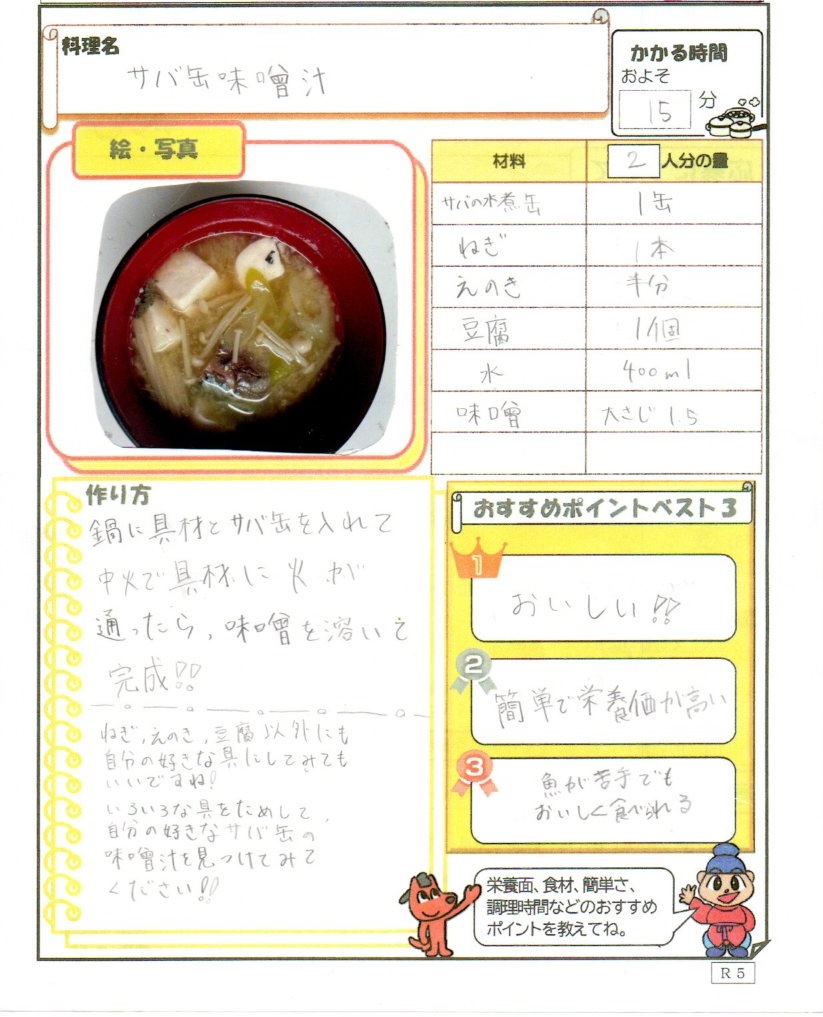 料理名
サバ缶味噌汁
かかる時間
およそ
15 分
絵・写真
材料 2 人分の量
サバの水煮缶 1缶
ねぎ 1本
えのき 半分
豆腐 1個
水 400ml
味噌 大さじ1.5
作り方
鍋に具材とサバ缶を入れて
中火で具材に火が
通ったら、味噌を溶いて
完成!!
ねぎ、えのき、豆腐以外にも
自分の好きな具にしてみても
いいですね!
いろいろな具をためして、
自分の好きなサバ缶の
味噌汁を見つけてみて
ください!!
おすすめポイントベスト3
1
おいしい!!
2
簡単で栄養価が高い
3
魚が苦手でも
おいしく食べられる
栄養面、食材、簡単さ、
調理時間などのおすすめ
ポイントを教えてね。
R5